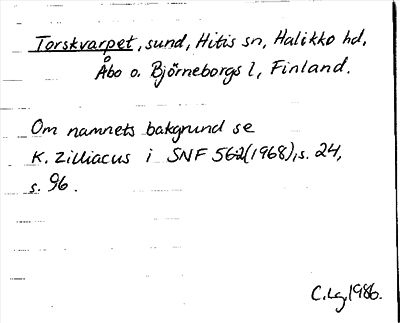 Torskvarpet, sund, Hitis sn, Halikko hd,
Åbo o. Björneborgs l, Finland.
Om namnets bakgrund se
K. Zilliacus i SNF 56:2 (1968), s. 24,
s. 96.
C.Lg, 1986.